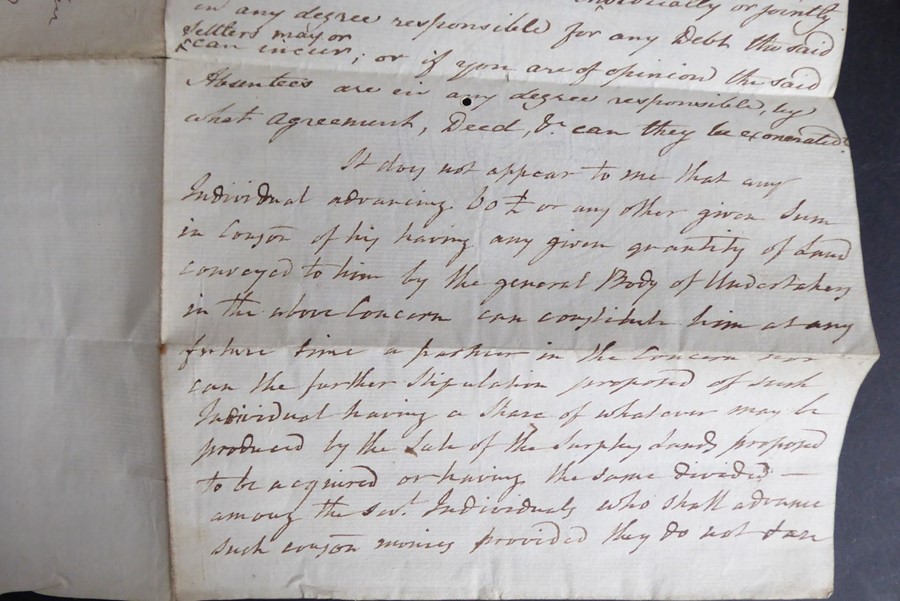 individually or jointly
in any degree responsible for any Debt the said
Settlers may or
can incur; or if you are of opinion the said
Absentees are in any degree responsible, by
what Agreement, Deed, &c. can they be exonerated?
It does not appear to me that any
Individual advancing 60 £ or any other given Sum
in Conson of his having any given quantity of Land
conveyed to him by the general Body of Undertakers
in the above Concern can constitute him at any
future time a partner in the Concern nor
can the further Stipulation proposed of such
Individual having a Share of whatever may be
produced by the Sale of the Surplus Lands proposed
to be acquired or having the same divided —
among the sevl. Individuals who shall advance
such conson monies provided they do not